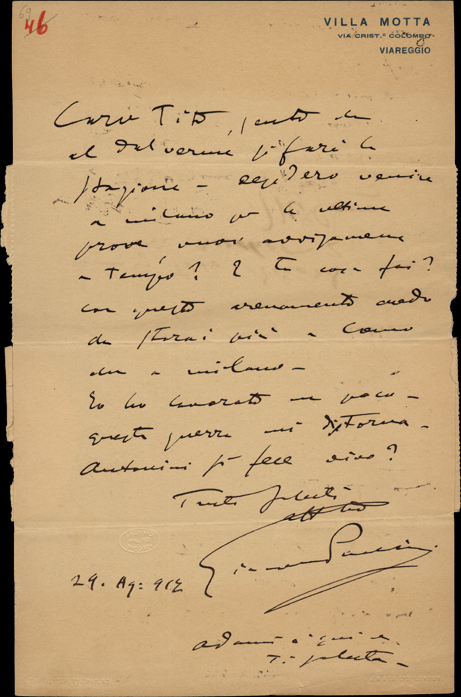 46
VILLA MOTTA
VIA CRIST.º COLOMBO
VIAREGGIO
Caro Tito, sento che
al Dal verme si farà la
stagione – desidero venire
a milano per le ultime
prove vuoi avvisarmene
a tempo? E tu cosa fai?
con questo armamento credo
che starai più a Como
che a milano –
Io ho lavorato un poco –
questa guerra mi distorna –
Antonini si fece vivo?
Tanti saluti
aff tuo
Giacomo Puccini
29. Ag: 917
adami è qui e
ti saluta –